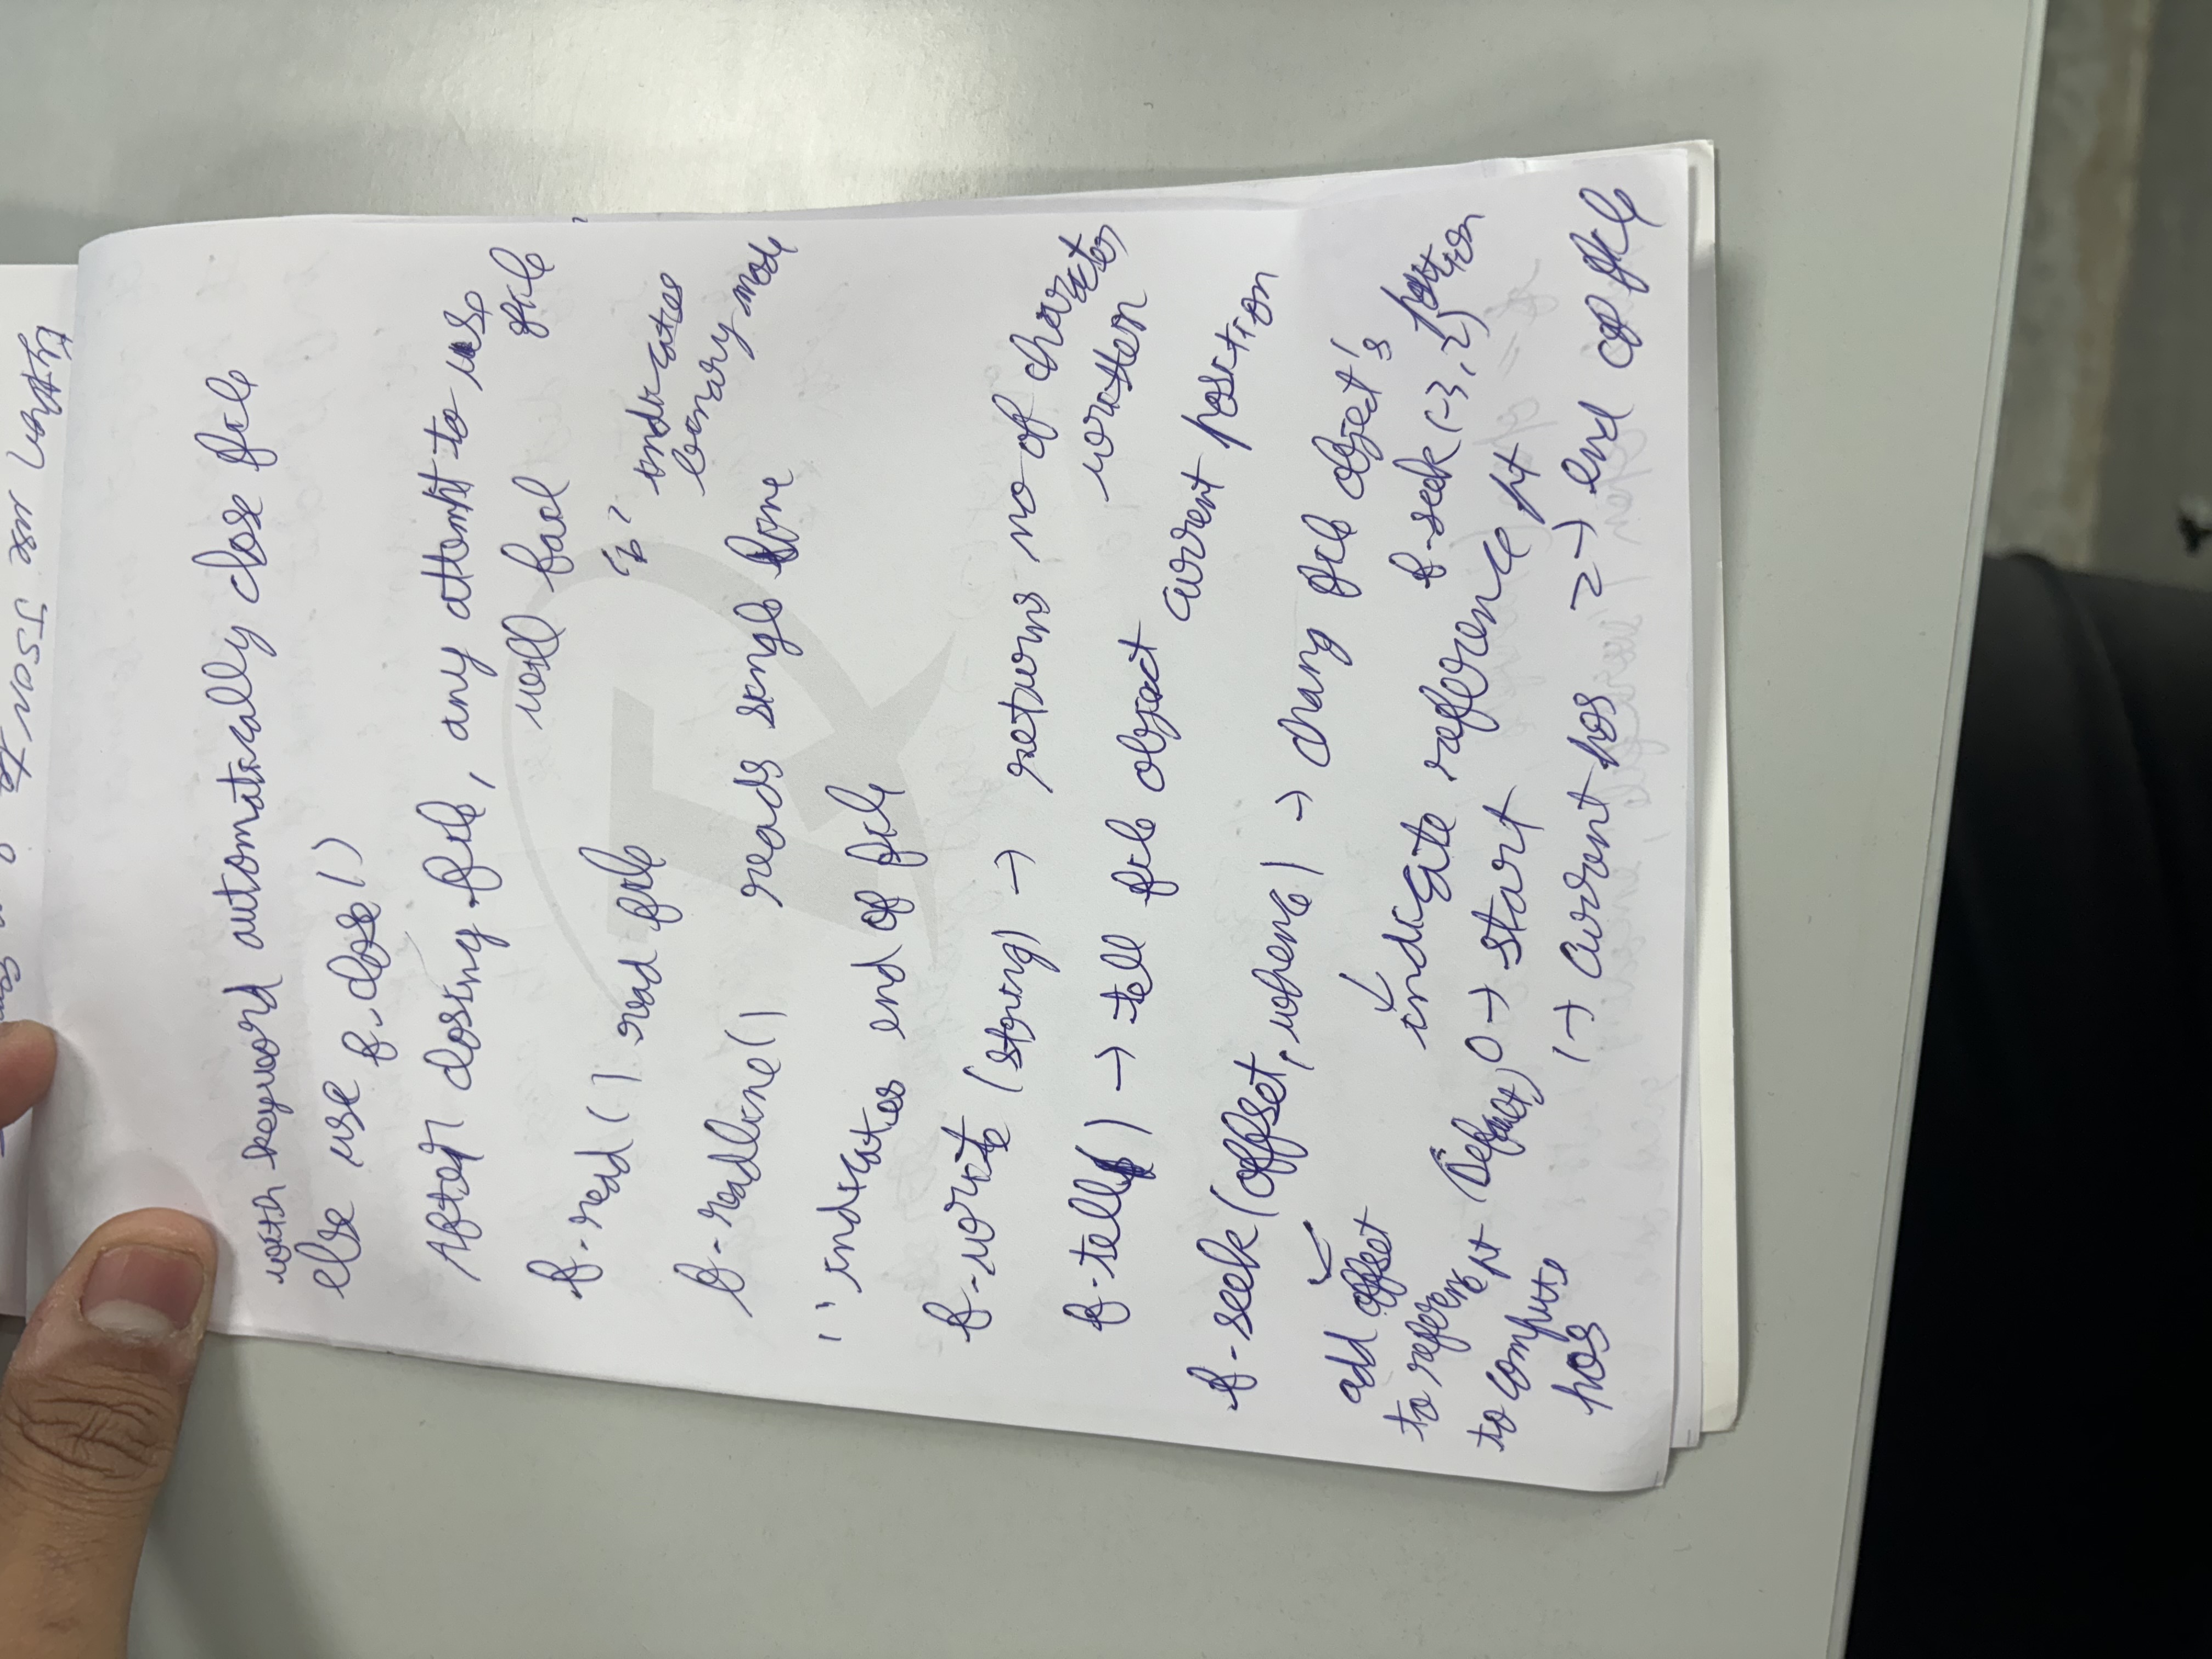 Python use JSON to
with keyword automatically close file
else use f.close()
After closing file, any attempt to use file
will fail
f.read() read file
'b' indicates
binary mode
f.readline() reads single line
'' indicates end of file
f.write(string) → returns no of character
written
f.tell() → tell file object current position
f.seek(offset, whence) → chang file object's position
add offset
to referenc pt
to compute
pos
indicate reference pt
f.seek(-3,2)
(Default) 0 → start
1 → current pos 2 → end of file